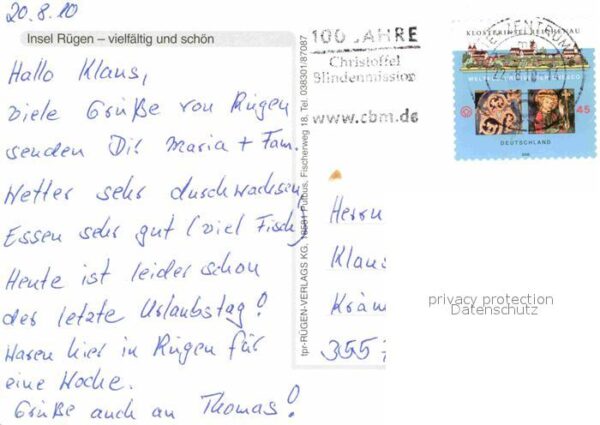 20.8.10
Insel Rügen – vielfältig und schön
Hallo Klaus,
Viele Grüße von Rügen
senden Dir Maria + Fam.
Wetter sehr durchwachsen,
Essen sehr gut (viel Fisch)
Heute ist leider schon
der letzte Urlaubstag!
Waren hier in Rügen für
eine Woche.
Grüße auch an Thomas!
tpr-RÜGEN-VERLAGS KG, 18581 Putbus, Fischerweg 18, Tel. 038301/87087
100 JAHRE
Christoffel
Blindenmission
www.cbm.de
KLOSTERINSEL REICHENAU
WELTKULTURERBE DER UNESCO
45
DEUTSCHLAND
2008
Herrn
Klaus
Kräm
355
privacy protection
Datenschutz